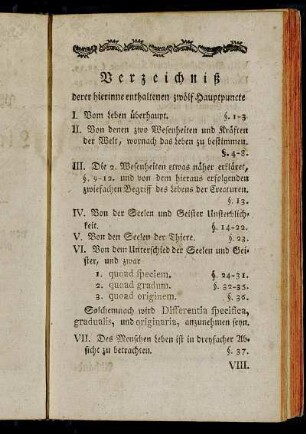 Verzeichniß
derer hierinne enthaltenen zwölf Hauptpuncte
I. Vom Leben überhaupt. §. 1-3.
II. Von denen zwo Wesenheiten und Kräften
der Welt, wornach das Leben zu bestimmen.
§. 4-8.
III. Die 2. Wesenheiten etwas näher erkläret,
§. 9-12. und von dem hieraus erfolgenden
zwiefachen Begriff des Lebens der Creaturen.
§. 13.
IV. Von der Seelen und Geister Unsterblich-
keit. §. 14-22.
V. Von den Seelen der Thiere. §. 23.
VI. Von dem Unterschied der Seelen und Gei-
ster, und zwar
1. quoad speciem. §. 24-31.
2. quoad gradum. §. 32-35.
3. quoad originem. §. 36.
Solchemnach wird Differentia specifica,
gradualis, und originaria, anzunehmen seyn.
VII. Des Menschen Leben ist in dreyfacher Ab-
sicht zu betrachten. §. 37.
VIII.